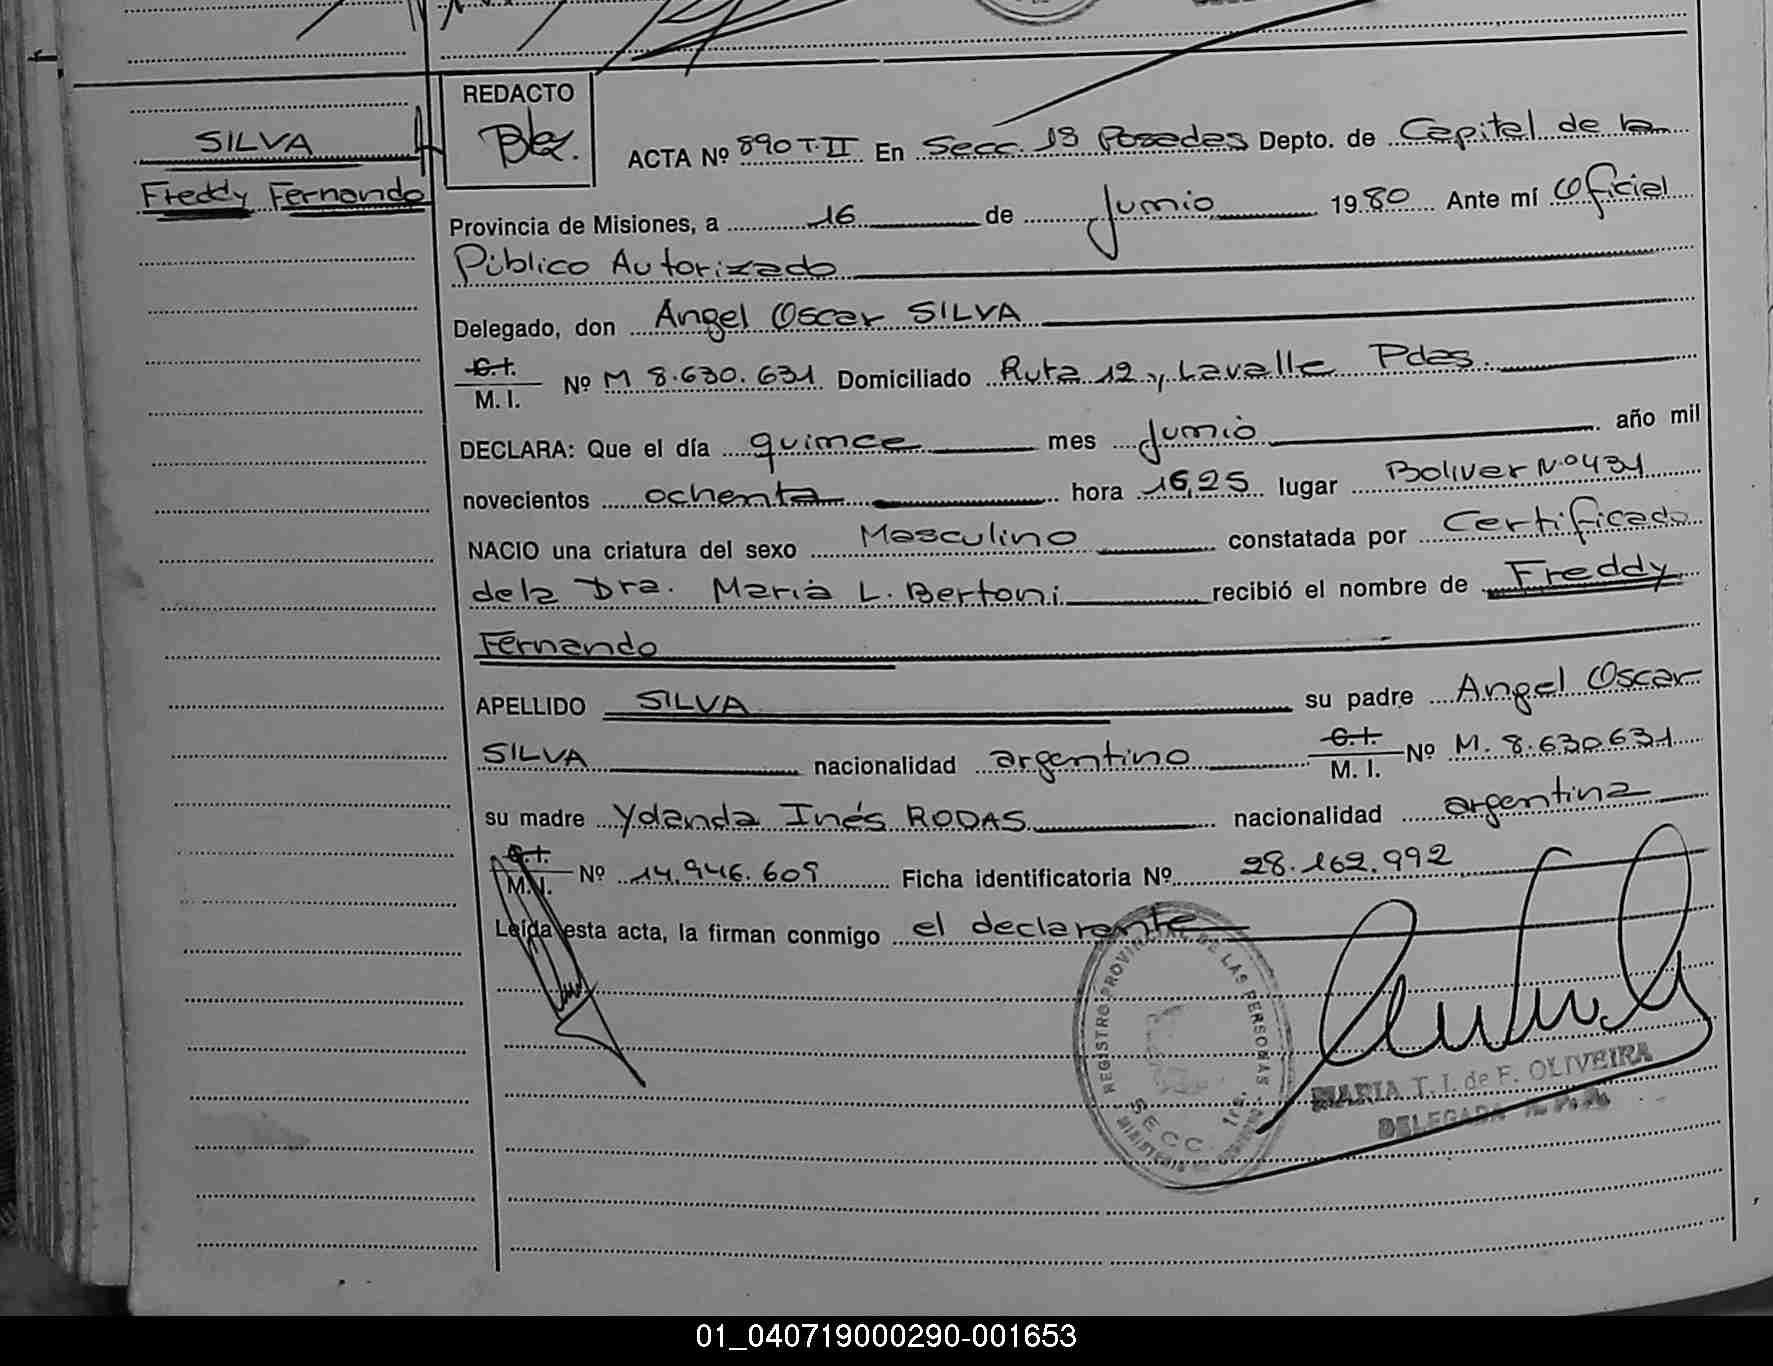 SILVA
Freddy Fernando
REDACTO
ACTA Nº 890 T. II En Secc. 1ª Posadas Depto. de Capital de la
Provincia de Misiones, a 16 de Junio 1980 Ante mí Oficial
Público Autorizado
Delegado, don Angel Oscar SILVA
C.I.
M. I. Nº M 8.630.631 Domiciliado Ruta 12 y Lavalle Pdas.
DECLARA: Que el día quince mes Junio año mil
novecientos ochenta hora 16,25 lugar Bolivar Nº 431
NACIO una criatura del sexo Masculino constatada por Certificado
de la Dra. María L. Bertoni recibió el nombre de Freddy
Fernando
APELLIDO SILVA su padre Angel Oscar
SILVA nacionalidad argentino C.I.
M. I. Nº M. 8.630631
su madre Yolanda Inés RODAS nacionalidad argentina
C.I.
M.I. Nº 14.946.609 Ficha identificatoria Nº 28.162.992
Leída esta acta, la firman conmigo el declarante
REGISTRO PROVINCIAL DE LAS PERSONAS
SECC. 1ra.
MINISTERIO DE GOBIERNO
MARIA T. I. de F. OLIVEIRA
DELEGADA
01_040719000290-001653